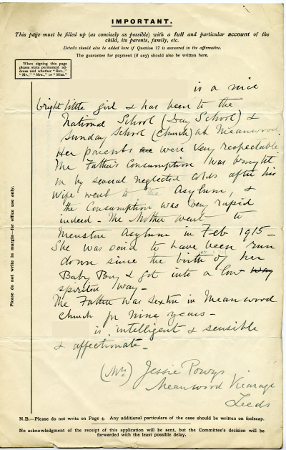 IMPORTANT.
This page must be filled up (as concisely as possible) with a full and particular account of the
child, its parents, family, etc.
Details should also be added here if Question 17 is answered in the affirmative.
The guarantee for payment (if any) should also be written here.
When signing this page
please state permanent ad-
dress and whether "Rev.,"
"Mr.," "Mrs.," or "Miss."
is a nice
bright little girl & has been to the
National School (Day School) &
Sunday School (Church) at Meanwood.
Her parents were very respectable
The Father's Consumption was brought
on by several neglected colds after his
wife went to the Asylum, &
the Consumption was very rapid
indeed - The Mother went to
Menston Asylum in Feb 1915 -
She was said to have been run
down since the birth of her
Baby Boy, & got into a low way
spirited way -
The Father was Sexton in Meanwood
Church for nine years -
is intelligent & sensible
& affectionate -
(Mrs) Jessie Powys
Meanwood Vicarage
Leeds
Please do not write in margin—for office use only.
N.B.—Please do not write on Page 4. Any additional particulars of the case should be written on foolscap.
No acknowledgment of the receipt of this application will be sent, but the Committee's decision will be
forwarded with the least possible delay.